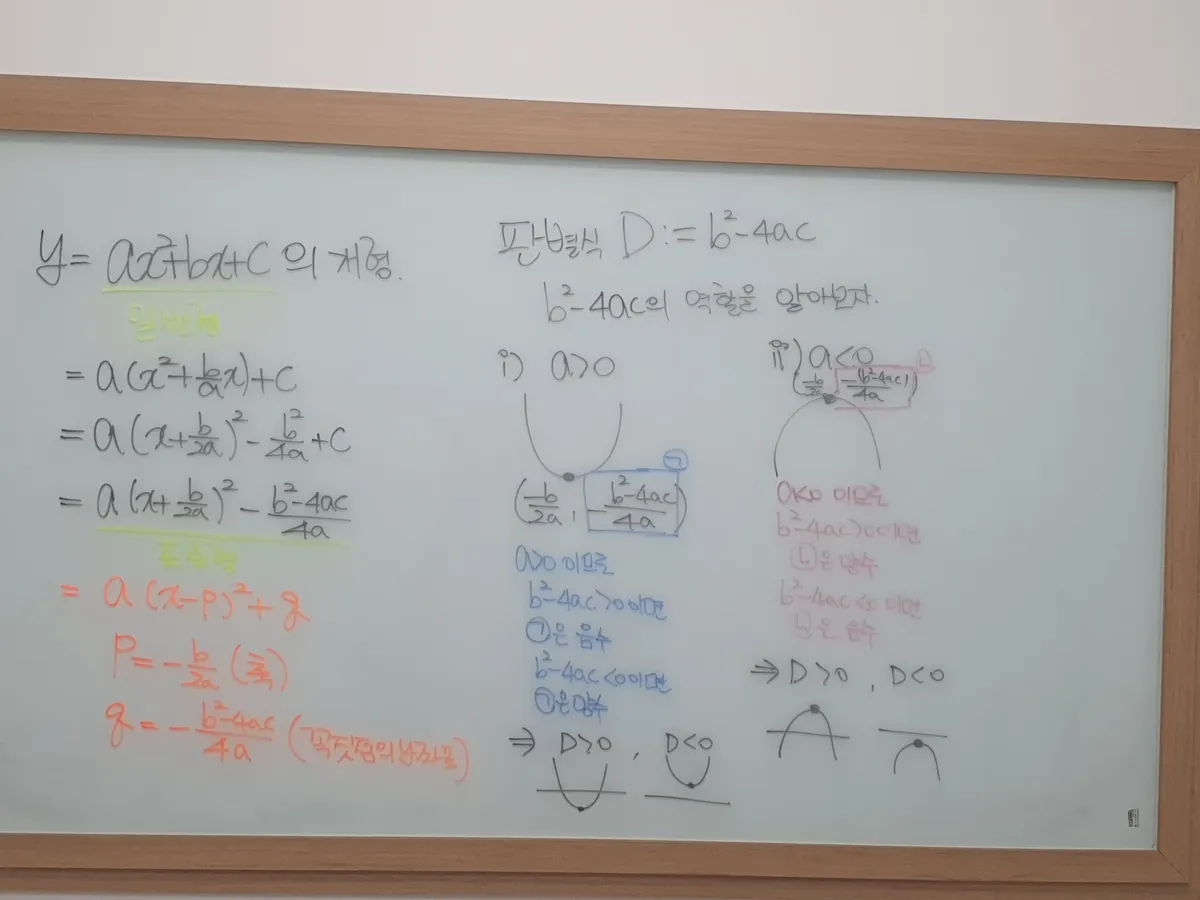 y = ax²+bx+c 의 개형.
일반형
= a(x²+b/a x)+c
= a(x+b/2a)² - b²/4a + c
= a(x+b/2a)² - (b²-4ac)/4a
표준형
= a(x-p)²+q
P = -b/2a (축)
q = -(b²-4ac)/4a (꼭짓점의 y좌표)
판별식 D := b²-4ac
b²-4ac의 역할을 알아보자.
i) a>0
㉠
(-b/2a, -(b²-4ac)/4a)
a>0 이므로
b²-4ac>0이면
㉠은 음수
b²-4ac<0이면
㉠은양수
⇒ D>0, D<0
ii) a<0
㉡
(-b/2a, -(b²-4ac)/4a)
a<0 이므로
b²-4ac>0이면
㉡은 양수
b²-4ac<0이면
㉡은 음수
⇒ D>0, D<0